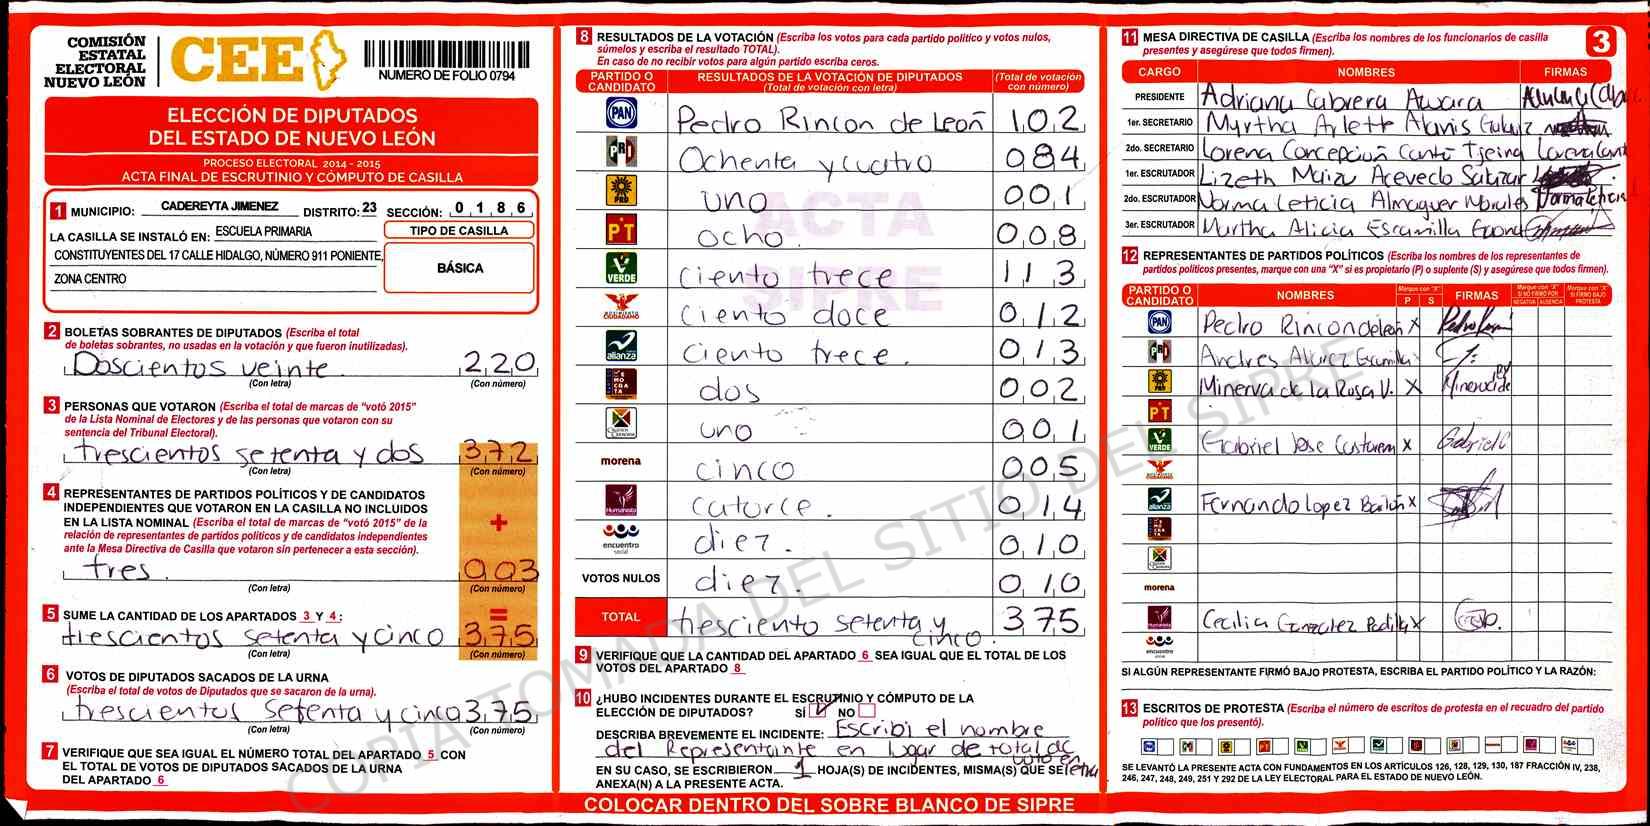 COMISIÓN
ESTATAL
ELECTORAL
NUEVO LEÓN
CEE
NUMERO DE FOLIO 0794
ELECCIÓN DE DIPUTADOS
DEL ESTADO DE NUEVO LEÓN
PROCESO ELECTORAL 2014 - 2015
ACTA FINAL DE ESCRUTINIO Y CÓMPUTO DE CASILLA
1 MUNICIPIO: CADEREYTA JIMENEZ DISTRITO: 23 SECCIÓN: 0 1 8 6
LA CASILLA SE INSTALÓ EN: ESCUELA PRIMARIA
CONSTITUYENTES DEL 17 CALLE HIDALGO, NÚMERO 911 PONIENTE,
ZONA CENTRO
TIPO DE CASILLA
BÁSICA
2 BOLETAS SOBRANTES DE DIPUTADOS (Escriba el total
de boletas sobrantes, no usadas en la votación y que fueron inutilizadas).
Doscientos veinte 220
(Con letra) (Con número)
3 PERSONAS QUE VOTARON (Escriba el total de marcas de "votó 2015"
de la Lista Nominal de Electores y de las personas que votaron con su
sentencia del Tribunal Electoral).
trescientos setenta y dos 372
(Con letra) (Con número)
4 REPRESENTANTES DE PARTIDOS POLÍTICOS Y DE CANDIDATOS
INDEPENDIENTES QUE VOTARON EN LA CASILLA NO INCLUIDOS
EN LA LISTA NOMINAL (Escriba el total de marcas de "votó 2015" de la
relación de representantes de partidos políticos y de candidatos independientes
ante la Mesa Directiva de Casilla que votaron sin pertenecer a esta sección).
+
tres. 003
(Con letra) (Con número)
5 SUME LA CANTIDAD DE LOS APARTADOS 3 Y 4: =
trescientos setenta y cinco 375
(Con letra) (Con número)
6 VOTOS DE DIPUTADOS SACADOS DE LA URNA
(Escriba el total de votos de Diputados que se sacaron de la urna).
trescientos setenta y cinco 375
(Con letra) (Con número)
7 VERIFIQUE QUE SEA IGUAL EL NÚMERO TOTAL DEL APARTADO 5 CON
EL TOTAL DE VOTOS DE DIPUTADOS SACADOS DE LA URNA
DEL APARTADO 6
8 RESULTADOS DE LA VOTACIÓN (Escriba los votos para cada partido político y votos nulos,
súmelos y escriba el resultado TOTAL).
En caso de no recibir votos para algún partido escriba ceros.
PARTIDO O CANDIDATO RESULTADOS DE LA VOTACIÓN DE DIPUTADOS (Total de votación con letra) (Total de votación con número)
PAN Pedro Rincon de León 102
PRI Ochenta y cuatro 084
PRD uno 001
PT ocho. 008
VERDE ciento trece 113
MOVIMIENTO CIUDADANO ciento doce 012
alianza ciento trece. 013
DEMOCRATA dos 002
CRUZADA CIUDADANA uno 001
morena cinco 005
Humanista catorce. 014
encuentro social diez. 010
VOTOS NULOS diez 010
TOTAL tresciento setenta y cinco. 375
ACTA
SIPRE
9 VERIFIQUE QUE LA CANTIDAD DEL APARTADO 6 SEA IGUAL QUE EL TOTAL DE LOS
VOTOS DEL APARTADO 8
10 ¿HUBO INCIDENTES DURANTE EL ESCRUTINIO Y CÓMPUTO DE LA
ELECCIÓN DE DIPUTADOS? SÍ NO
DESCRIBA BREVEMENTE EL INCIDENTE: Escribi el nombre
del Representante en lugar de total de
votos en
EN SU CASO, SE ESCRIBIERON 1 HOJA(S) DE INCIDENTES, MISMA(S) QUE SE letra
ANEXA(N) A LA PRESENTE ACTA.
COLOCAR DENTRO DEL SOBRE BLANCO DE SIPRE
11 MESA DIRECTIVA DE CASILLA (Escriba los nombres de los funcionarios de casilla
presentes y asegúrese que todos firmen).
3
CARGO NOMBRES FIRMAS
PRESIDENTE Adriana Cabrera Awara
1er. SECRETARIO Myrtha Arlette Alanis
2do. SECRETARIO Lorena Concepción Cantú Tjeina Lorena Cant
1er. ESCRUTADOR Lizeth Maizu Acevedo Salazar
2do. ESCRUTADOR Norma Leticia Almaguer Morales Norma Leticia
3er. ESCRUTADOR Martha Alicia Escamilla
12 REPRESENTANTES DE PARTIDOS POLÍTICOS (Escriba los nombres de los representantes de
partidos políticos presentes, marque con una "X" si es propietario (P) o suplente (S) y asegúrese que todos firmen).
PARTIDO O CANDIDATO NOMBRES Marque con "X" P S FIRMAS Marque con "X" SI NO FIRMÓ POR NEGATIVA AUSENCIA Marque con "X" SI FIRMÓ BAJO PROTESTA
PAN Pedro Rincon de león X
PRI Andres Alvarez Escamilla
PRD Minerva de la Rosa V. X
PT
VERDE Gabriel Jose X Gabriel
MOVIMIENTO CIUDADANO
alianza Fernando Lopez X
morena
Humanista Cecilia Gonzalez Padilla X
encuentro social
SI ALGÚN REPRESENTANTE FIRMÓ BAJO PROTESTA, ESCRIBA EL PARTIDO POLÍTICO Y LA RAZÓN:
13 ESCRITOS DE PROTESTA (Escriba el número de escritos de protesta en el recuadro del partido
político que los presentó).
SE LEVANTÓ LA PRESENTE ACTA CON FUNDAMENTOS EN LOS ARTÍCULOS 126, 128, 129, 130, 187 FRACCIÓN IV, 238,
246, 247, 248, 249, 251 Y 292 DE LA LEY ELECTORAL PARA EL ESTADO DE NUEVO LEÓN.
COPIA TOMADA DEL SITIO DEL SIPRE